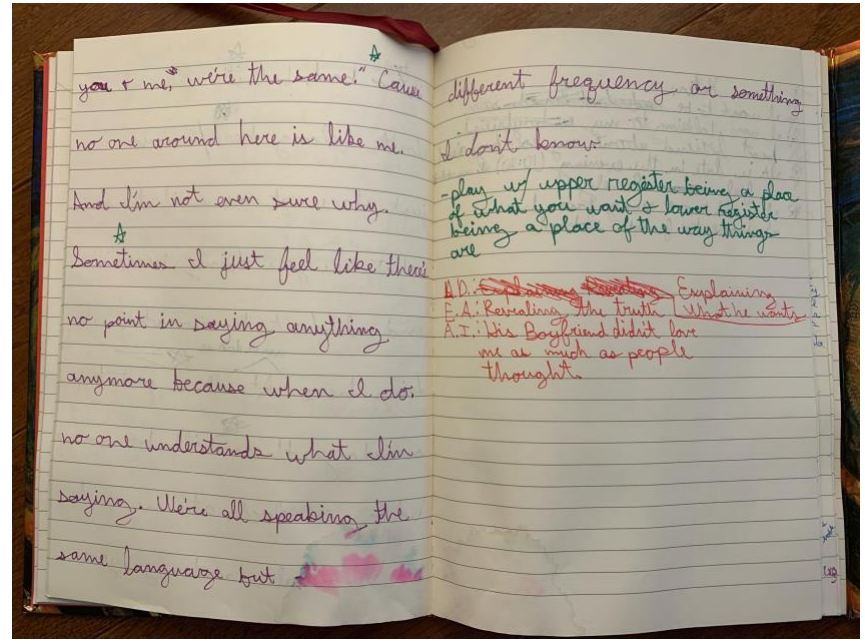 you & me, we're the same." Cause
no one around here is like me.
And I'm not even sure why.
Sometimes I just feel like there's
no point in saying anything
anymore because when I do.
no one understands what I'm
saying. We're all speaking the
same language but -
different frequency or something
I don't know
-play w/ upper register being a place
of what you want & lower register
being a place of the way things
are
A.D.: Explaining
what he wants
E.A.: Revealing the truth
A.I.: His Boyfriend didn't love
me as much as people
thought.